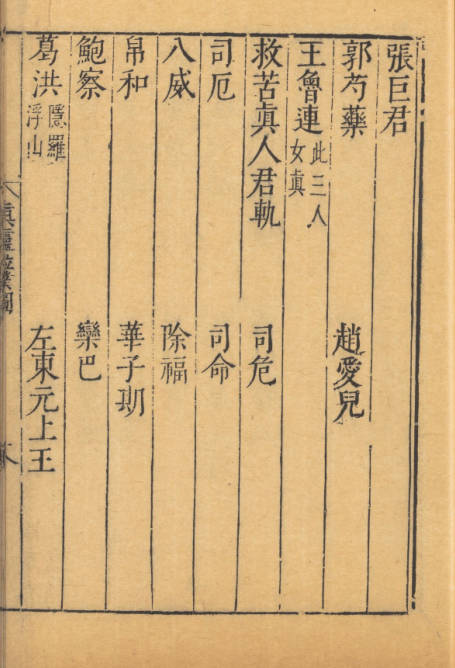 張巨君
郭芍藥 趙愛兒
王魯連 此三人女真
救苦真人君軌 司危
司厄 司命
八威 除福
帛和 華子期
鮑察 欒巴
葛洪 隱羅浮山 左東元上王
真靈位業圖